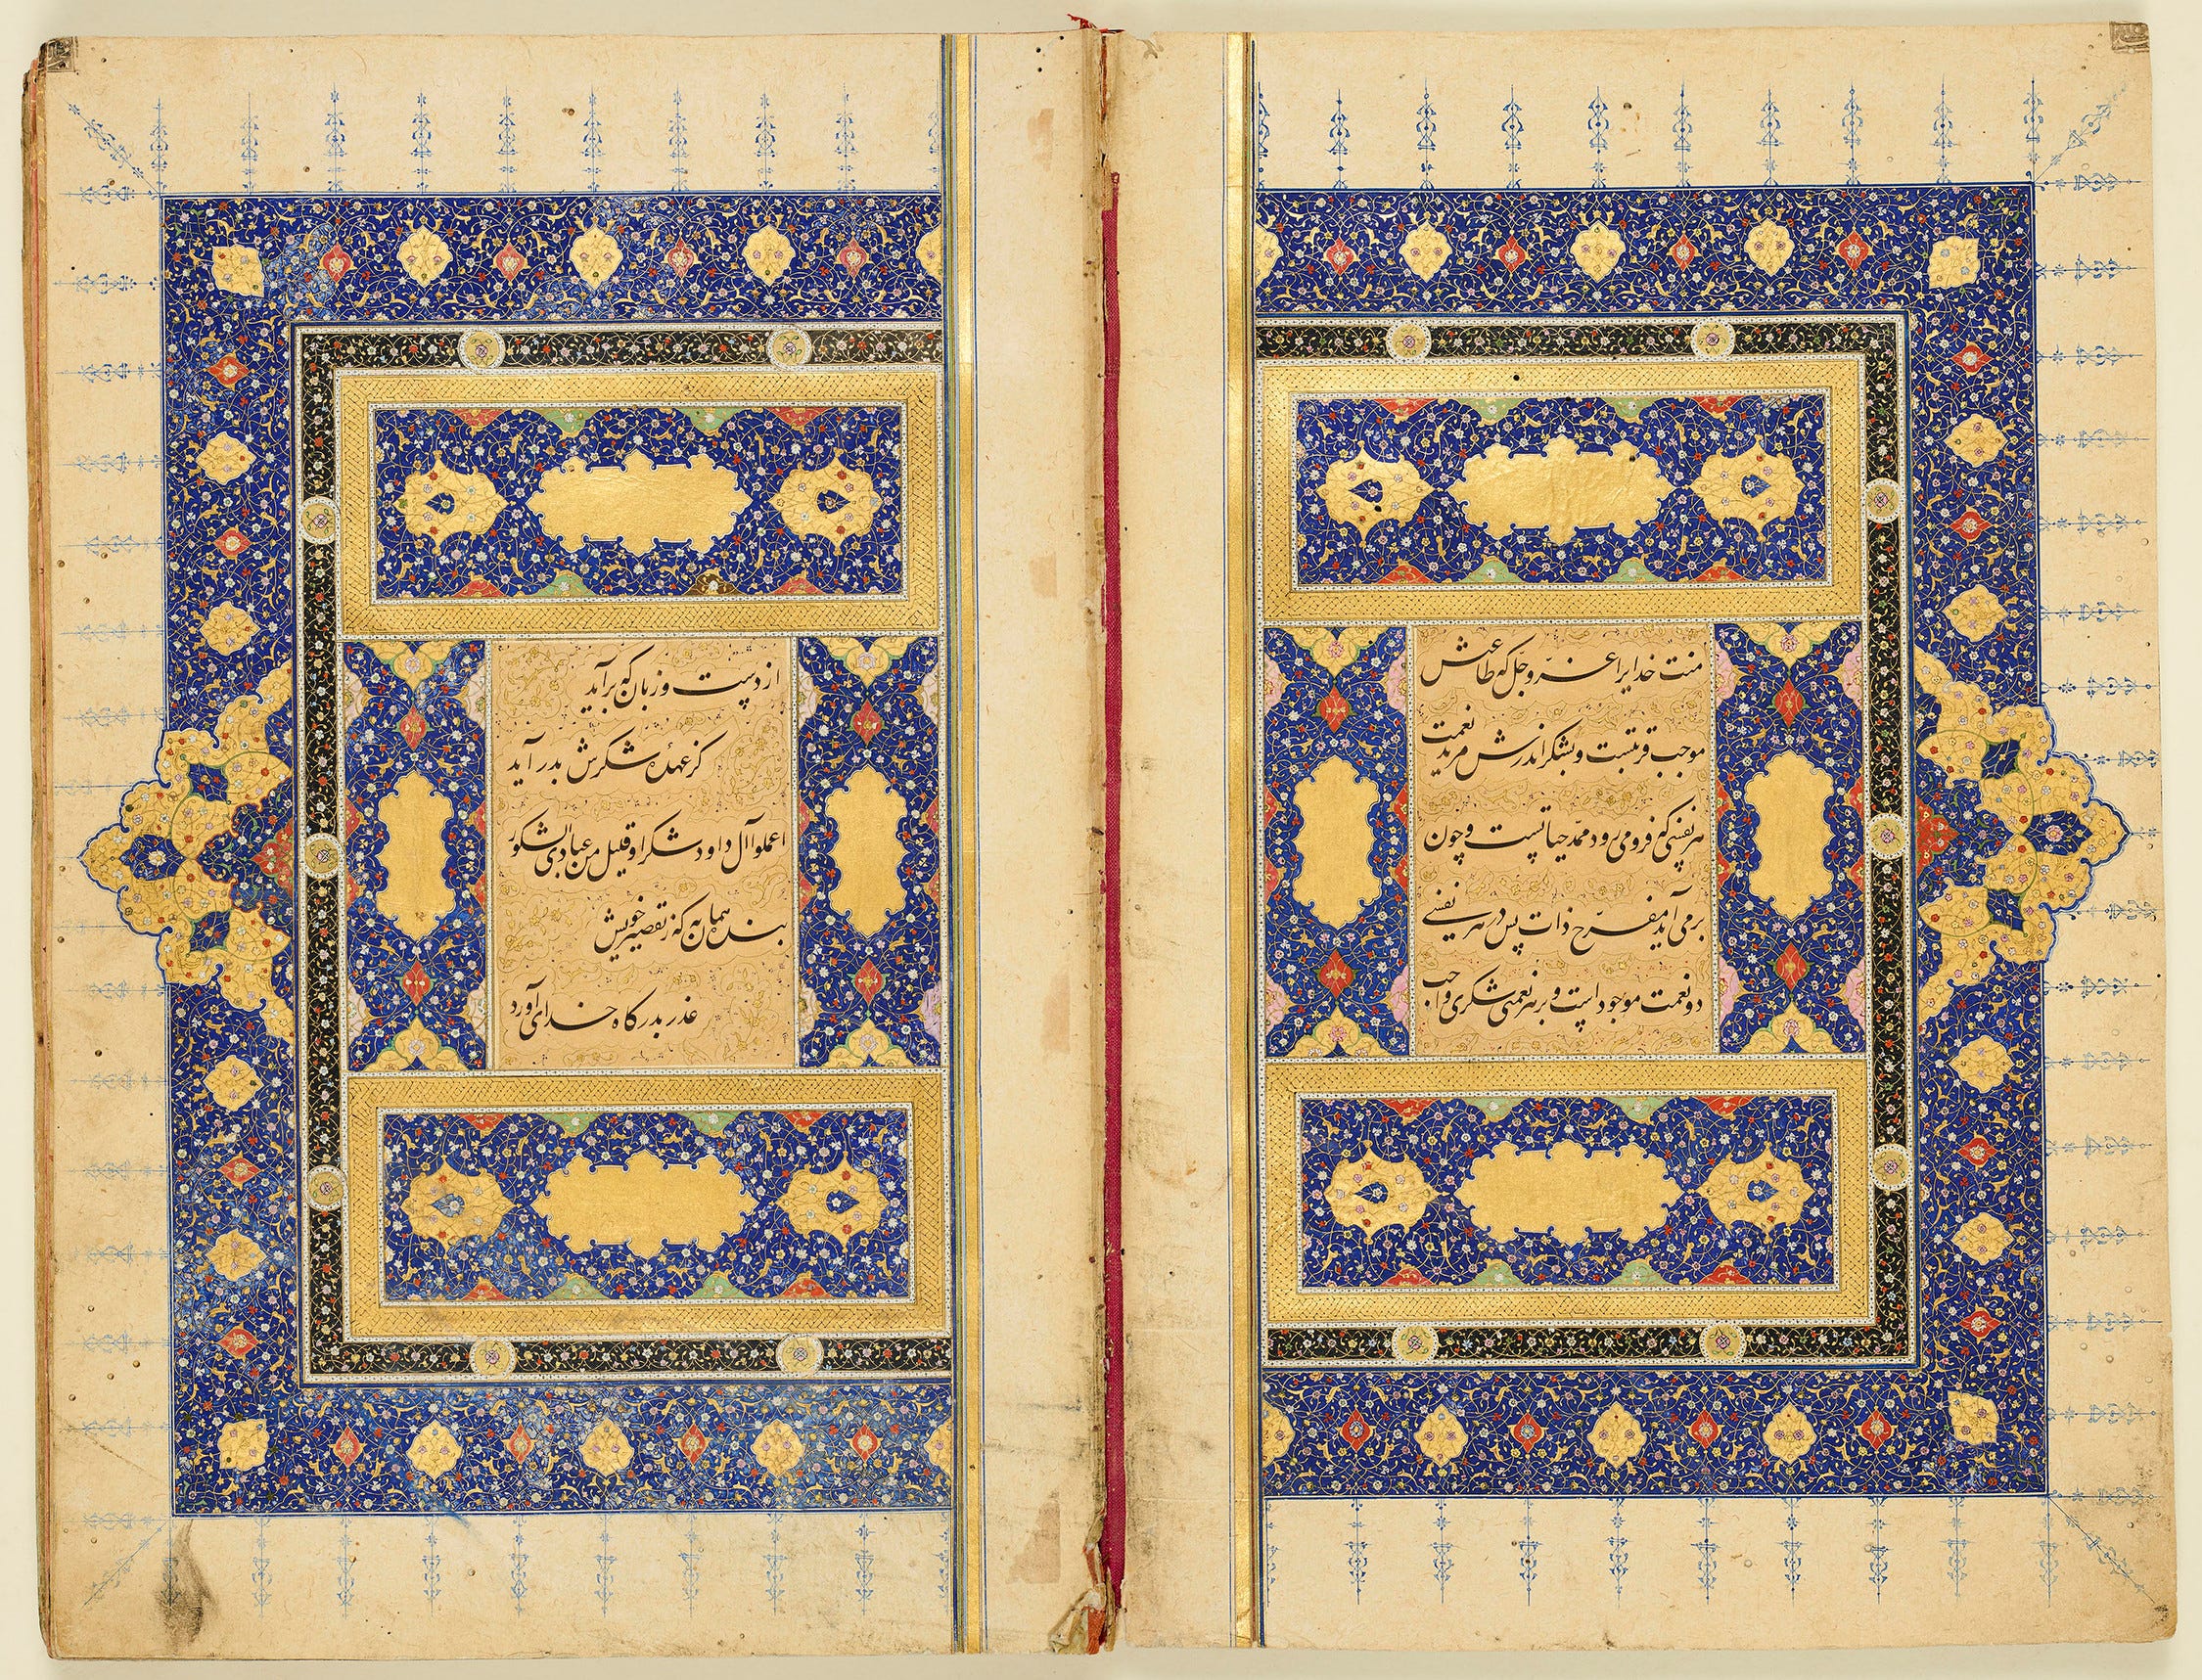 منت خدایرا عز و جل که طاعتش
موجب قربتست و بشکر اندرش مزید نعمت
هر نفسی که فرو می رود ممد حیاتست و چون
بر می آید مفرح ذات پس در هر نفسی
دو نعمت موجود است و بر هر نعمتی شکری واجب
از دست و زبان که برآید
کز عهده شکرش بدر آید
اعملوا آل داود شکرا و قلیل من عبادی الشکور
بنده همان به که ز تقصیر خویش
عذر بدرگاه خدای آورد